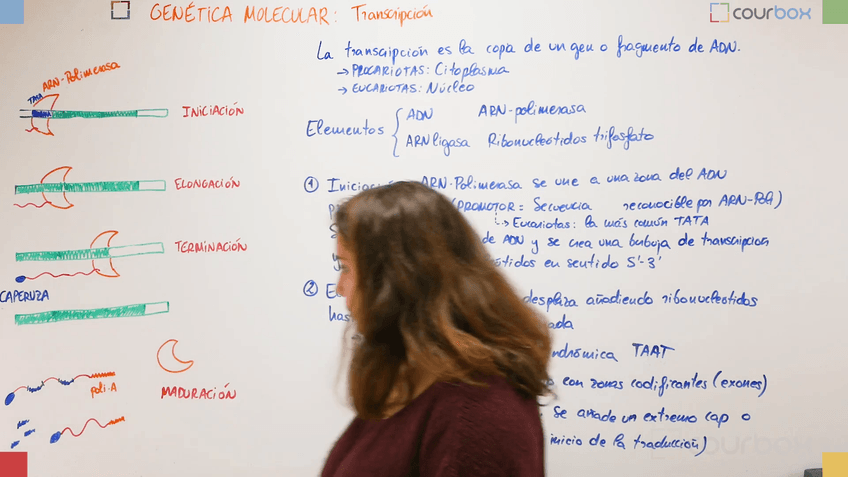 GENÉTICA MOLECULAR: Transcripción
courbox
La transcripción es la copia de un gen o fragmento de ADN.
→ PROCARIOTAS: Citoplasma
→ EUCARIOTAS: Núcleo
Elementos { ADN ARN-polimerasa
ARN ligasa Ribonucleotidos trifosfato
TATA
ARN-Polimerasa
INICIACIÓN
ELONGACIÓN
TERMINACIÓN
CAPERUZA
poli-A
MADURACIÓN
① ARN-Polimerasa se une a una zona del ADN
(PROMOTOR = Secuencia reconocible por ARN-Pol)
→ Eucariotas: la más común TATA
de ADN y se crea una burbuja de transcripción
en sentido 5'-3'
② desplaza añadiendo ribonucleotidos
TAAT
con zonas codificantes (exones)
Se añade un extremo cap o
inicio de la traducción)
courbox